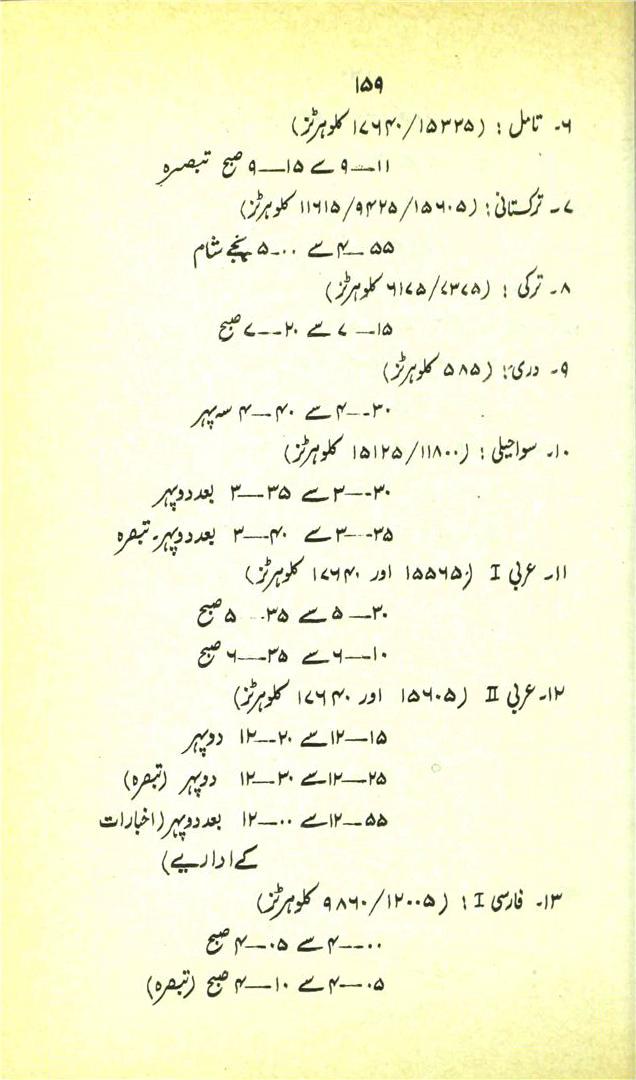 ۱۵۹
۶۔ تامل : (۱۷۶۴۰/۱۵۳۲۵ کلوہرٹز)
۱۱—۹ سے ۱۵—۹ صبح تبصرہ
۷۔ ترکستانی : (۱۱۶۱۵/۹۴۲۵/۱۵۶۰۵ کلوہرٹز)
۵۵—۴ سے ۰۰—۵ بجے شام
۸۔ ترکی : (۶۱۷۵/۷۳۷۵ کلوہرٹز)
۱۵—۷ سے ۲۰—۷ صبح
۹۔ دری : (۵۸۵ کلوہرٹز)
۳۰—۴ سے ۴۰—۴ سہ پہر
۱۰۔ سواحیلی : (۱۵۱۲۵/۱۱۸۰۰ کلوہرٹز)
۳۰—۳ سے ۳۵—۳ بعد دوپہر
۳۵—۳ سے ۴۰—۳ بعد دوپہر۔ تبصرہ
۱۱۔ عربی I (۱۵۵۶۵ اور ۱۷۶۴۰ کلوہرٹز)
۳۰—۵ سے ۳۵—۵ صبح
۱۰—۶ سے ۳۵—۶ صبح
۱۲۔ عربی II (۱۵۶۰۵ اور ۱۷۶۴۰ کلوہرٹز)
۱۵—۱۲ سے ۲۰—۱۲ دوپہر
۲۵—۱۲ سے ۳۰—۱۲ دوپہر (تبصرہ)
۵۵—۱۲ سے ۰۰—۱۲ بعد دوپہر (اخبارات
کے اداریے)
۱۳۔ فارسی I : (۹۸۶۰/۱۲۰۰۵ کلوہرٹز)
۰۰—۴ سے ۰۵—۴ صبح
۰۵—۴ سے ۱۰—۴ صبح (تبصرہ)